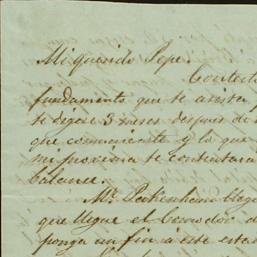 Mi querido Pepe.
Contesto
fundamento que te asista
te dejare 3 meses despues de
que comunicaste y lo que
mi proxima te contentara
balance.
Mr. Packenham llega
que llegue el
ponga un fin á este estad